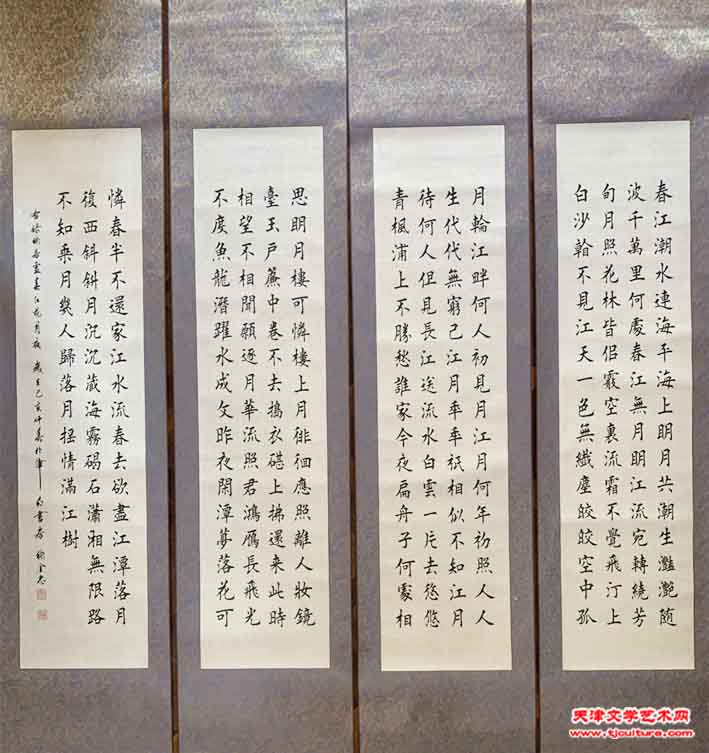 春江潮水連海平海上明月共潮生灩灔随
波千萬里何處春江無月明江流宛轉繞芳
旬月照花林皆侣霰空裏流霜不覺飛汀上
白沙翰不見江天一色無纖塵皎皎空中孤
月輪江畔何人初見月江月何年初照人人
生代代無窮已江月年年祇相似不知江月
待何人但見長江送流水白雲一片去悠悠
青楓浦上不勝愁誰家今夜扁舟子何處相
思明月樓可憐樓上月徘徊應照離人妝鏡
臺玉戶簾中卷不去搗衣碪上拂還来此時
相望不相聞願逐月華流照君鴻雁長飛光
不度魚龍潛躍水成文昨夜閑潭夢落花可
憐春半不還家江水流春去欲盡江潭落月
復西斜斜月沉沉藏海霧碣石瀟湘無限路
不知乘月幾人歸落月摇情滿江樹
若虛春江花月夜 歲在己亥仲
天津文学艺术网
www.tjculture.com